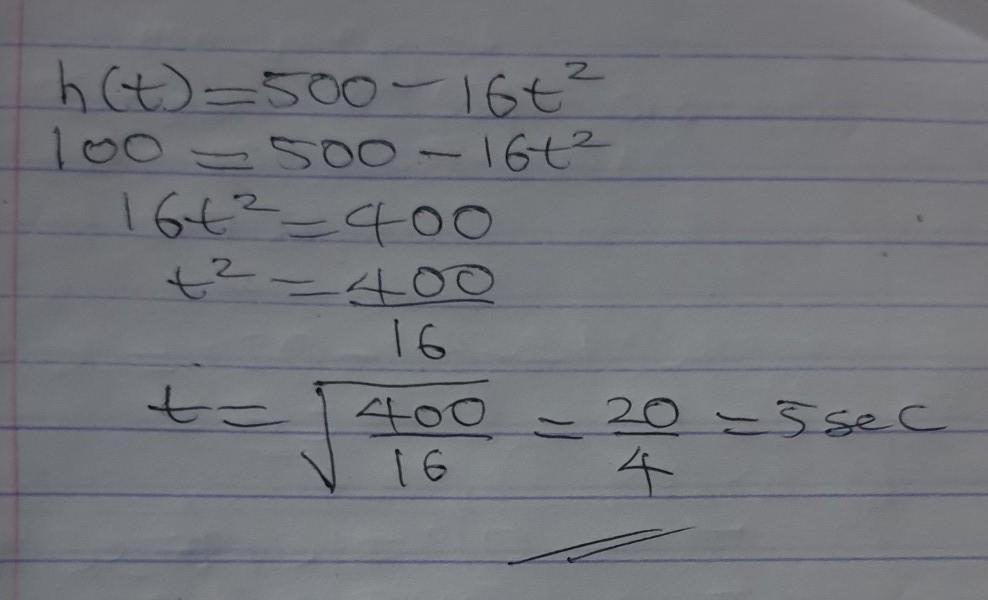 h(t) = 500 - 16t²
100 = 500 - 16t²
16t² = 400
t² = 400/16
t = √(400/16) = 20/4 = 5 sec